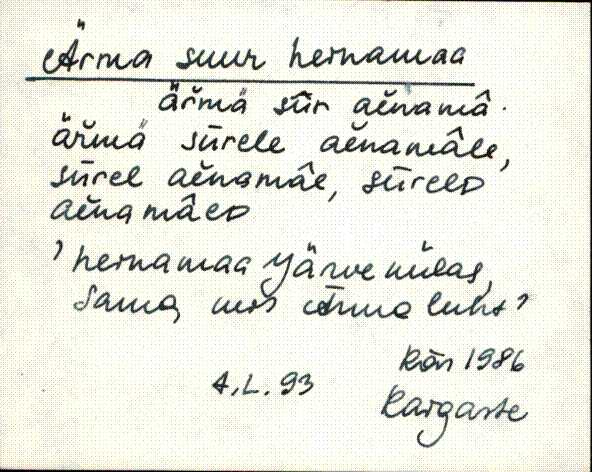 Ärma suur heinamaa
är̆mä sūr aĕnamâ.
är̆mä sūrele aĕnamâle,
sūrel aĕnamâl, sūreld
aĕnamâld
’heinamaa Järve külas,
sama, mis Ärma luht’
Rõn 1986
A.L. 93 Kaigaste